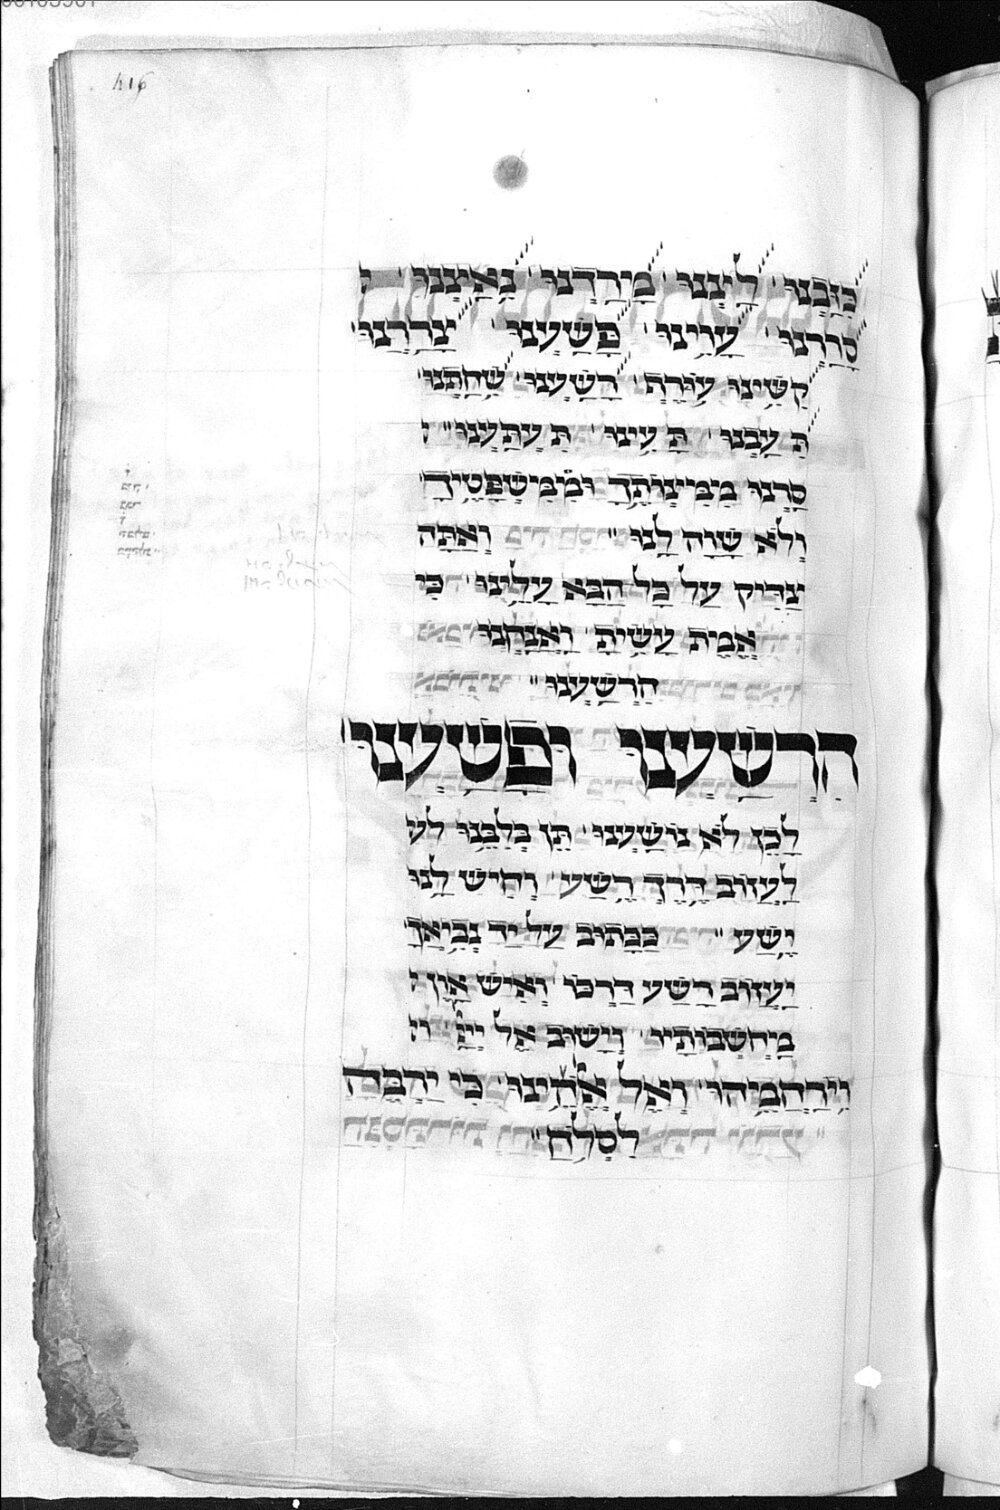 416
כִּזַּבְנוּ לַיצַנְנוּ מָרַדְנוּ נִאַצְנוּ
סָרַרְנוּ עָוִינוּ פָּשַׁעְנוּ צָרַרְנוּ
קִשִּׁינוּ עוֹרֶף רָשַׁעְנוּ שִׁחַתְנוּ
תִּעַבְנוּ תָּעִינוּ תִּעְתָּעְנוּ
סַרְנוּ מִמִּצְוֹתֶיךָ וּמִמִּשְׁפָּטֶיךָ
וְלֹא שָׁוָה לָנוּ וְאַתָּה
צַדִּיק עַל כָּל הַבָּא עָלֵינוּ כִּי
אֱמֶת עָשִׂיתָ וַאֲנַחְנוּ
הִרְשָׁעְנוּ
הִרְשַׁעְנוּ וּפָשַׁעְנוּ
לָכֵן לֹא נוֹשָׁעְנוּ תֵּן בְּלִבֵּנוּ
לַעֲזוֹב דֶּרֶךְ רֶשַׁע וְחִישׁ לָנוּ
יֶשַׁע כַּכָּתוּב עַל יַד נְבִיאֶךָ
יַעֲזוֹב רָשָׁע דַּרְכּוֹ וְאִישׁ אָוֶן
מַחְשְׁבוֹתָיו וְיָשׁוּב אֶל יְיָ
וִירַחֲמֵיהוּ וְאֶל אֱלֹהֵינוּ כִּי יַרְבֶּה
לִסְלֹחַ